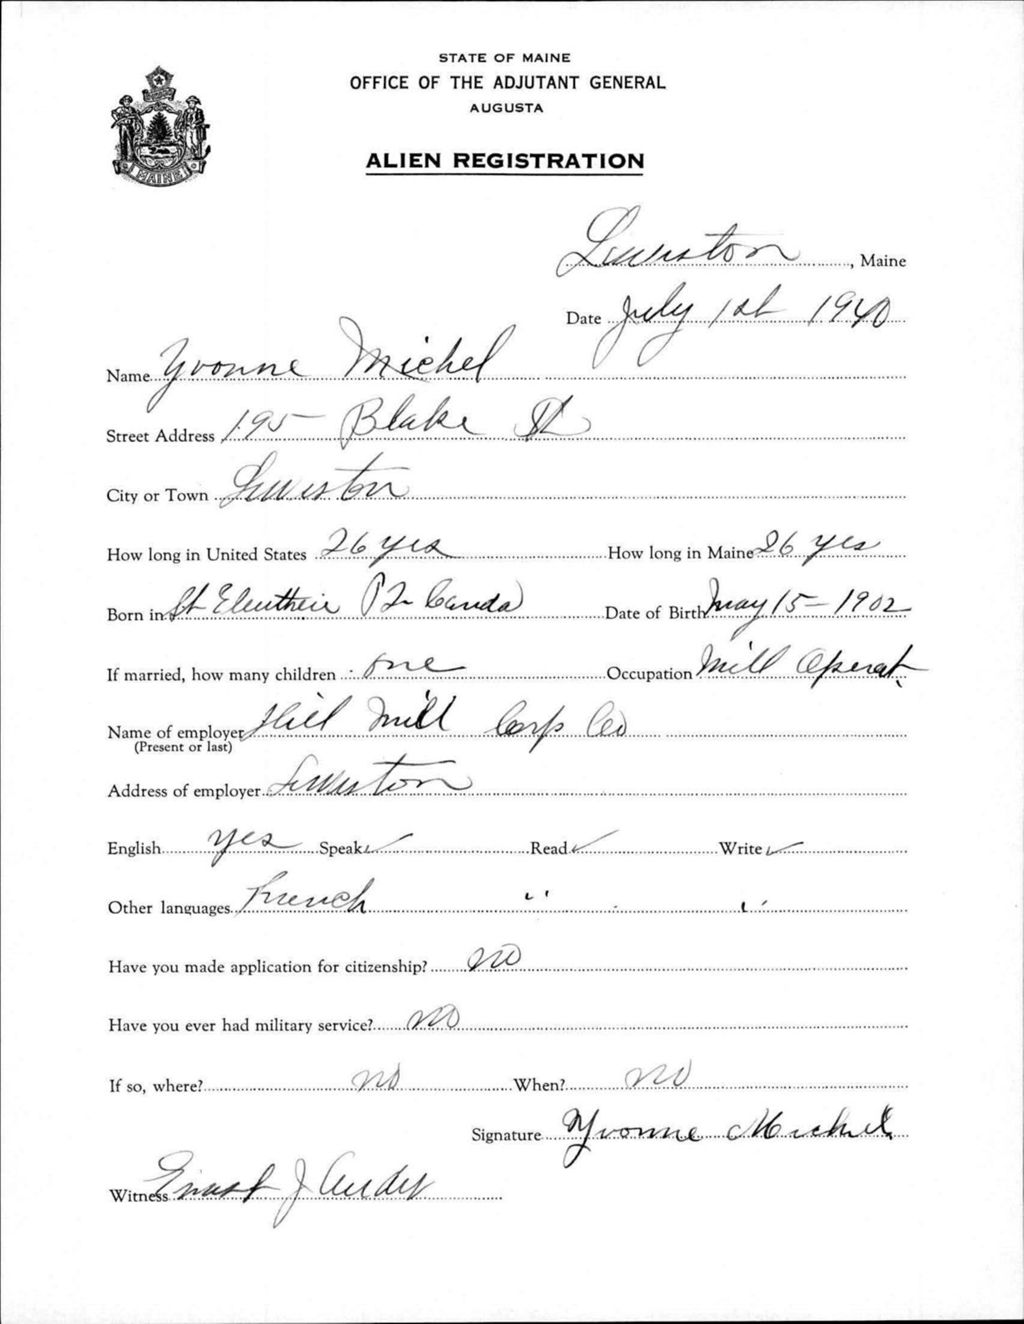 STATE OF MAINE
OFFICE OF THE ADJUTANT GENERAL
AUGUSTA
MAINE
ALIEN REGISTRATION
Lewiston, Maine
Date July 1st 1940
Name Yvonne Michel
Street Address 195 Blake St
City or Town Lewiston
How long in United States 26 yrs How long in Maine 26 yrs
Born in St Eleutheir P2 Canda Date of Birth May 15 - 1902
If married, how many children one Occupation Mill Operat.
Name of employer Hill Mill Corp Co
(Present or last)
Address of employer Lewiston
English yes Speak ✓ Read ✓ Write ✓
Other languages French " . "
Have you made application for citizenship? no
Have you ever had military service? no
If so, where? no When? no
Signature Yvonne Michel
Witness J